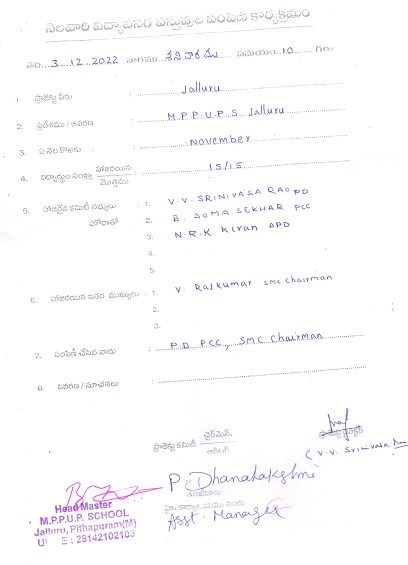 నెలవారి విద్యావసర వస్తువుల పంపిణి కార్యక్రమం
తేది. 3.12..2022 వారము శనివారము సమయం 10 గం॥
1. ప్రాజెక్టు పేరు : Jalluru
2. ప్రదేశము / ఆవరణ : M.P.P.U.P.S Jalluru
3. ఏ నెల కొరకు : November
4. విద్యార్ధుల సంఖ్య హాజరయిన / మొత్తము : 15/15
5. హాజరైన కమిటీ సభ్యులు : 1. V.V. SRINIVASA RAO PD
హోదాతో 2. B. SOMA SEKHAR PCC
3. N.R.K. Kiran APD
4.
5.
6. హాజరయిన ఇతర ముఖ్యులు : 1. V. Rajkumar SMC Chairman
2.
3.
7. పంపిణీ చేసిన వారు : P.D PCC, SMC Chairman
8. వివరణ / సూచనలు :
ప్రాజెక్టు కమిటీ ఛైర్మెన్,
(V.V. Srinivasa
P. Dhanalakshmi
Asst. Manager
Head Master
M.P.P.U.P. SCHOOL
Jalluru, Pithapuram(M)
E : 28142102103